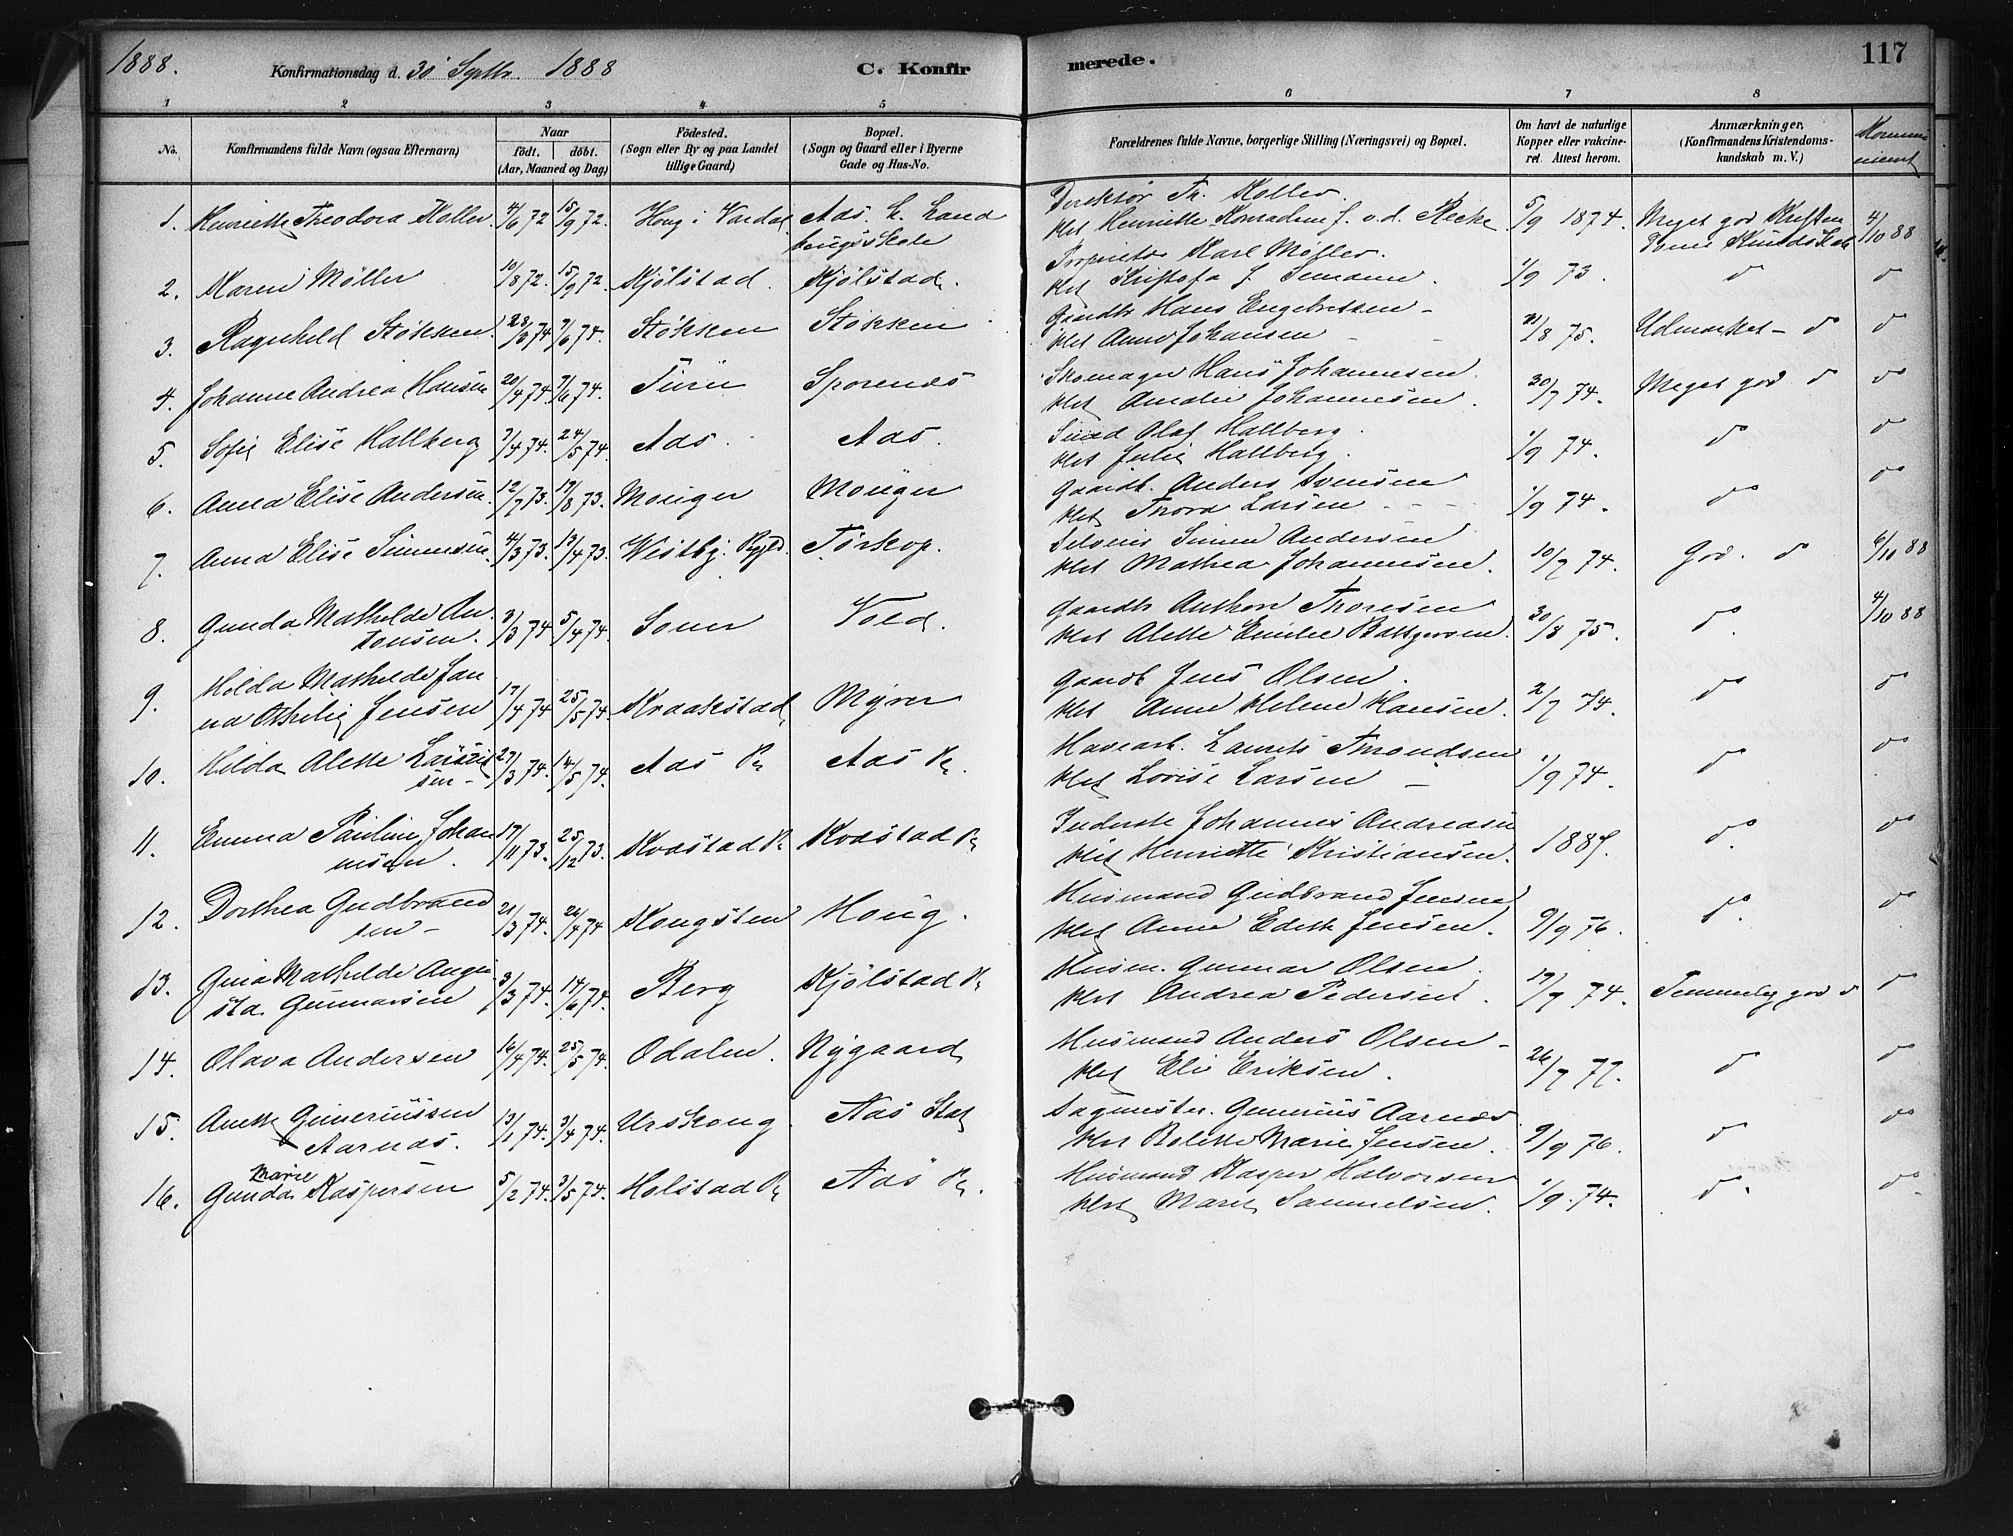 1888. Konfirmationsdag d. 30 Septbr. 1888 C. Konfirmerede. 117
1 2 3 4 5 6 7 8
No. Konfirmandens fulde Navn (ogsaa Efternavn) Naar født. døbt. (Aar, Maaned og Dag) Fødested. (Sogn eller By og paa Landet tillige Gaard) Bopæl. (Sogn og Gaard eller i Byerne Gade og Hus-No. Forældrenes fulde Navne, borgerlige Stilling (Næringsvei) og Bopæl. Om havt de naturlige Kopper eller vakcineret. Attest herom. Anmærkninger, (Konfirmandens Kristendomskundskab m. V.)
1. Henriette Theodora Koller. 4/6 72 15/9 72. Houg i Vardal Aas h. Landbrugsskole Direktør Th. Koller. Het Henriette Konradine f. v. d. Recke 5/9 1874. Meget god Kristendoms Kundskab 4/10 88
2. Karen Møller 10/8 72. 15/9 72. Kjølstad. Kjølstad. Proprietær Karl Møller. Het Kristofa f. Semann. 1/9 73. do do
3. Ragnhild Støkken. 28/6 74 7/6 74. Støkken Støkken Gaardbr Hans Engebretsen Het Anne Johansen 21/8 75. Udmærket - do do
4. Johanne Andrea Hansen 20/4 74. 7/6 74. Sporenæs Skomager Hans Johannesen. Het Amalie Johannesen. 30/7 74. Meget god do do
5. Sofie Elise Hallberg 7/4 74. 24/5 74. Aas Aas. Smed Olaf Hallberg. Het Julie Hallberg. 1/9 74. do do
6. Anna Elise Andersen 12/7 73. 17/8 73. Mouger Mouger Gaardb. Anders Svensen Het Thora Larsen 1/9 74. do do
7. Anna Elise Simensen 4/3 73. 13/4 73. Westby Rygd. Tørkop. Selveier Simen Andersen Het Mathea Johannesen. 10/7 74. God. do 6/10 88
8. Gunda Mathilde Antonsen. 3/3 74 5/4 74. Soner Vold. Gaardbr Anthon Thoresen Het Alette Emilie Battgersen. 20/8 75. do 4/10 88
9. Hilda Mathilde Janna Othilie Jensen 17/4 74 25/5 74 Kraakstad Myrer Gaardb Jens Olsen. Het Anne Helene Hansen. 2/7 74. do do
10. Hilda Alette Lauritsen - 27/3 74. 14/5 74. Aas Pr Aas Pr. Havearb. Laurits Throndsen Het Lovise Larsen 1/9 74. do do
11. Emma Pauline Johannesen. 17/11 73. 25/12 73. Kvæstad Pr Kvæstad Pr Inderste Johannes Andreasen Het Henriette Kristiansen. 1887. do do
12. Dorthea Gudbrandsen - 21/3 74. 26/4 74 Kongsten Houg. Husmand Gudbrand Jensen Het Anne Edith Jensen. 9/9 76. do do
13. Gina Mathilde Augusta. Gunnarsen 3/3 74. 14/6 74. Berg Kjølstad Pr Husm. Gunnar Olsen. Het Andrea Pedersen. 17/7 74. Temmelig god do do
14. Olava Andersen 16/4 74. 25/5 74. Odalen. Nygaard Husmand Anders Olsen - Het Eli Eriksen. 26/7 77. do do
15. Anette Guneriussen Aarnæs. 13/1 74. 3/4 74. Urskoug Aas Stat Sagmester. Gunerius Aarnæs. Het Bolette Marie Jensen. 9/9 76. do do
16. Gunda Marie Kaspersen 5/2 74. 3/5 74. Holstad Pr Aas Pr. Husmand Kasper Halvorsen Het Maret Samuelsen. 1/9. 74. do do